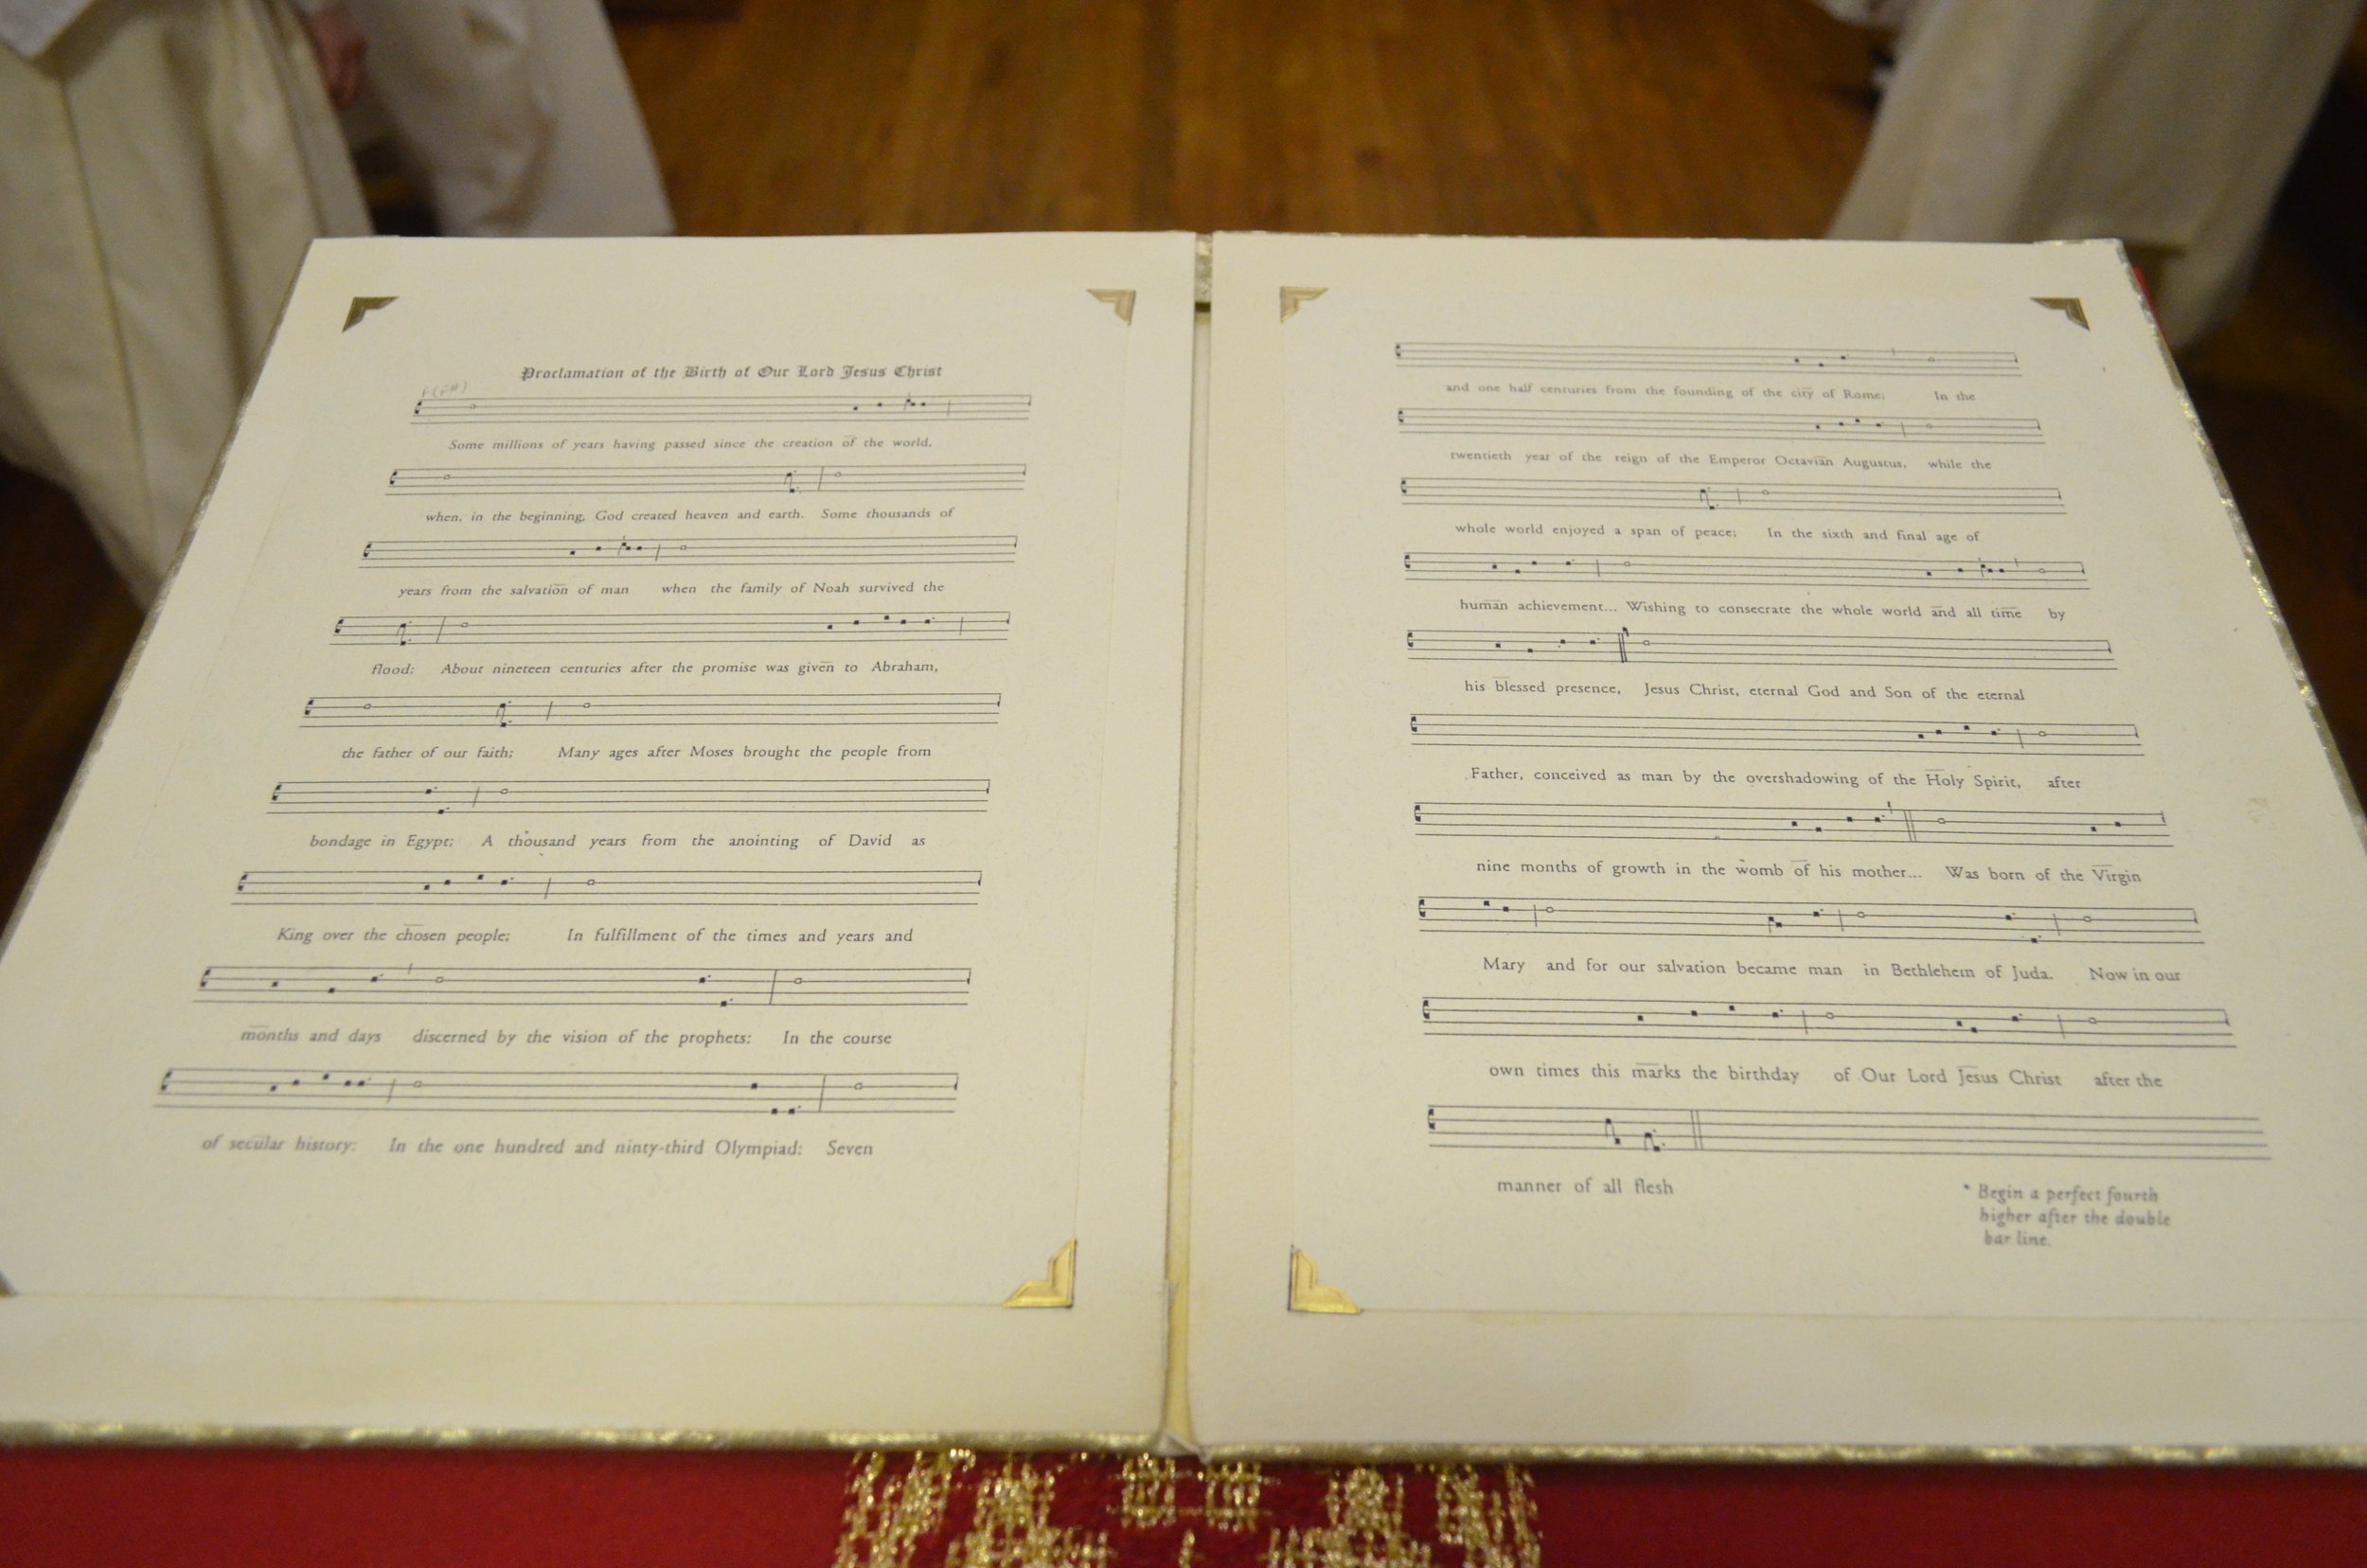 Proclamation of the Birth of Our Lord Jesus Christ
Some millions of years having passed since the creation of the world,
when, in the beginning, God created heaven and earth. Some thousands of
years from the salvation of man when the family of Noah survived the
flood; About nineteen centuries after the promise was given to Abraham,
the father of our faith; Many ages after Moses brought the people from
bondage in Egypt; A thousand years from the anointing of David as
King over the chosen people; In fulfillment of the times and years and
months and days discerned by the vision of the prophets: In the course
of secular history: In the one hundred and ninty-third Olympiad; Seven
and one half centuries from the founding of the city of Rome; In the
twentieth year of the reign of the Emperor Octavian Augustus, while the
whole world enjoyed a span of peace; In the sixth and final age of
human achievement... Wishing to consecrate the whole world and all time by
his blessed presence, Jesus Christ, eternal God and Son of the eternal
Father, conceived as man by the overshadowing of the Holy Spirit, after
nine months of growth in the womb of his mother... Was born of the Virgin
Mary and for our salvation became man in Bethlehem of Juda. Now in our
own times this marks the birthday of Our Lord Jesus Christ after the
manner of all flesh
* Begin a perfect fourth
higher after the double
bar line.